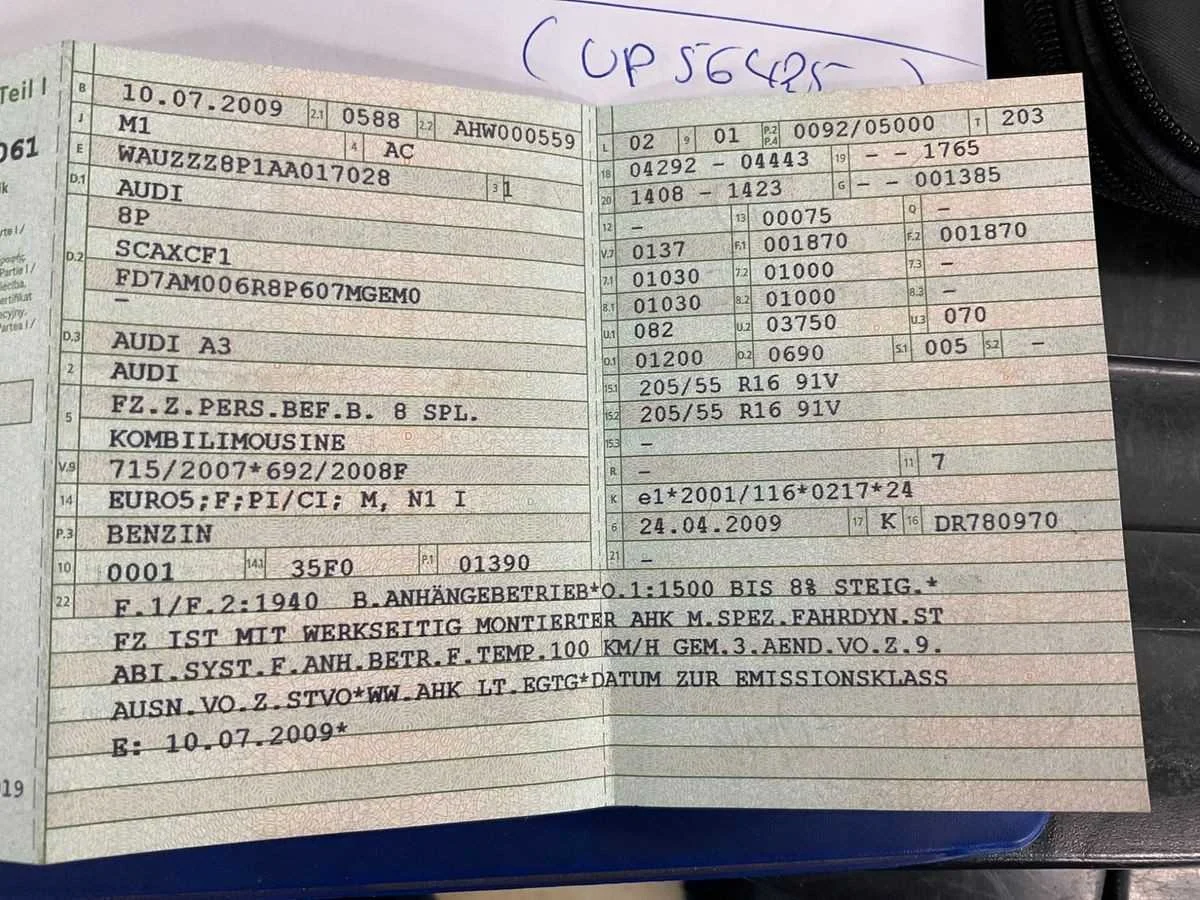 (UP 56425)
Teil I
061
rte I /
Partie I /
ertifikat
Partea I /
019
B 10.07.2009 2.1 0588 2.2 AHW000559
J M1 4 AC
E WAUZZZ8P1AA017028 3 1
D.1 AUDI
8P
D.2 SCAXCF1
FD7AM006R8P607MGEM0
–
D.3 AUDI A3
2 AUDI
5 FZ.Z.PERS.BEF.B. 8 SPL.
KOMBILIMOUSINE
V.9 715/2007*692/2008F
14 EURO5;F;PI/CI; M, N1 I
P.3 BENZIN
10 0001 14.1 35F0 P.1 01390
L 02 9 01 P.2 P.4 0092/05000 T 203
18 04292 - 04443 19 - - 1765
20 1408 - 1423 G - - 001385
12 – 13 00075 Q –
V.7 0137 F.1 001870 F.2 001870
7.1 01030 7.2 01000 7.3 –
8.1 01030 8.2 01000 8.3 –
U.1 082 U.2 03750 U.3 070
O.1 01200 O.2 0690 S.1 005 S.2 –
15.1 205/55 R16 91V
15.2 205/55 R16 91V
15.3 –
R – 11 7
K e1*2001/116*0217*24
6 24.04.2009 17 K 16 DR780970
21 –
22 F.1/F.2:1940 B.ANHÄNGEBETRIEB*O.1:1500 BIS 8% STEIG.*
FZ IST MIT WERKSEITIG MONTIERTER AHK M.SPEZ.FAHRDYN.ST
ABI.SYST.F.ANH.BETR.F.TEMP.100 KM/H GEM.3.AEND.VO.Z.9.
AUSN.VO.Z.STVO*WW.AHK LT.EGTG*DATUM ZUR EMISSIONSKLASS
E: 10.07.2009*